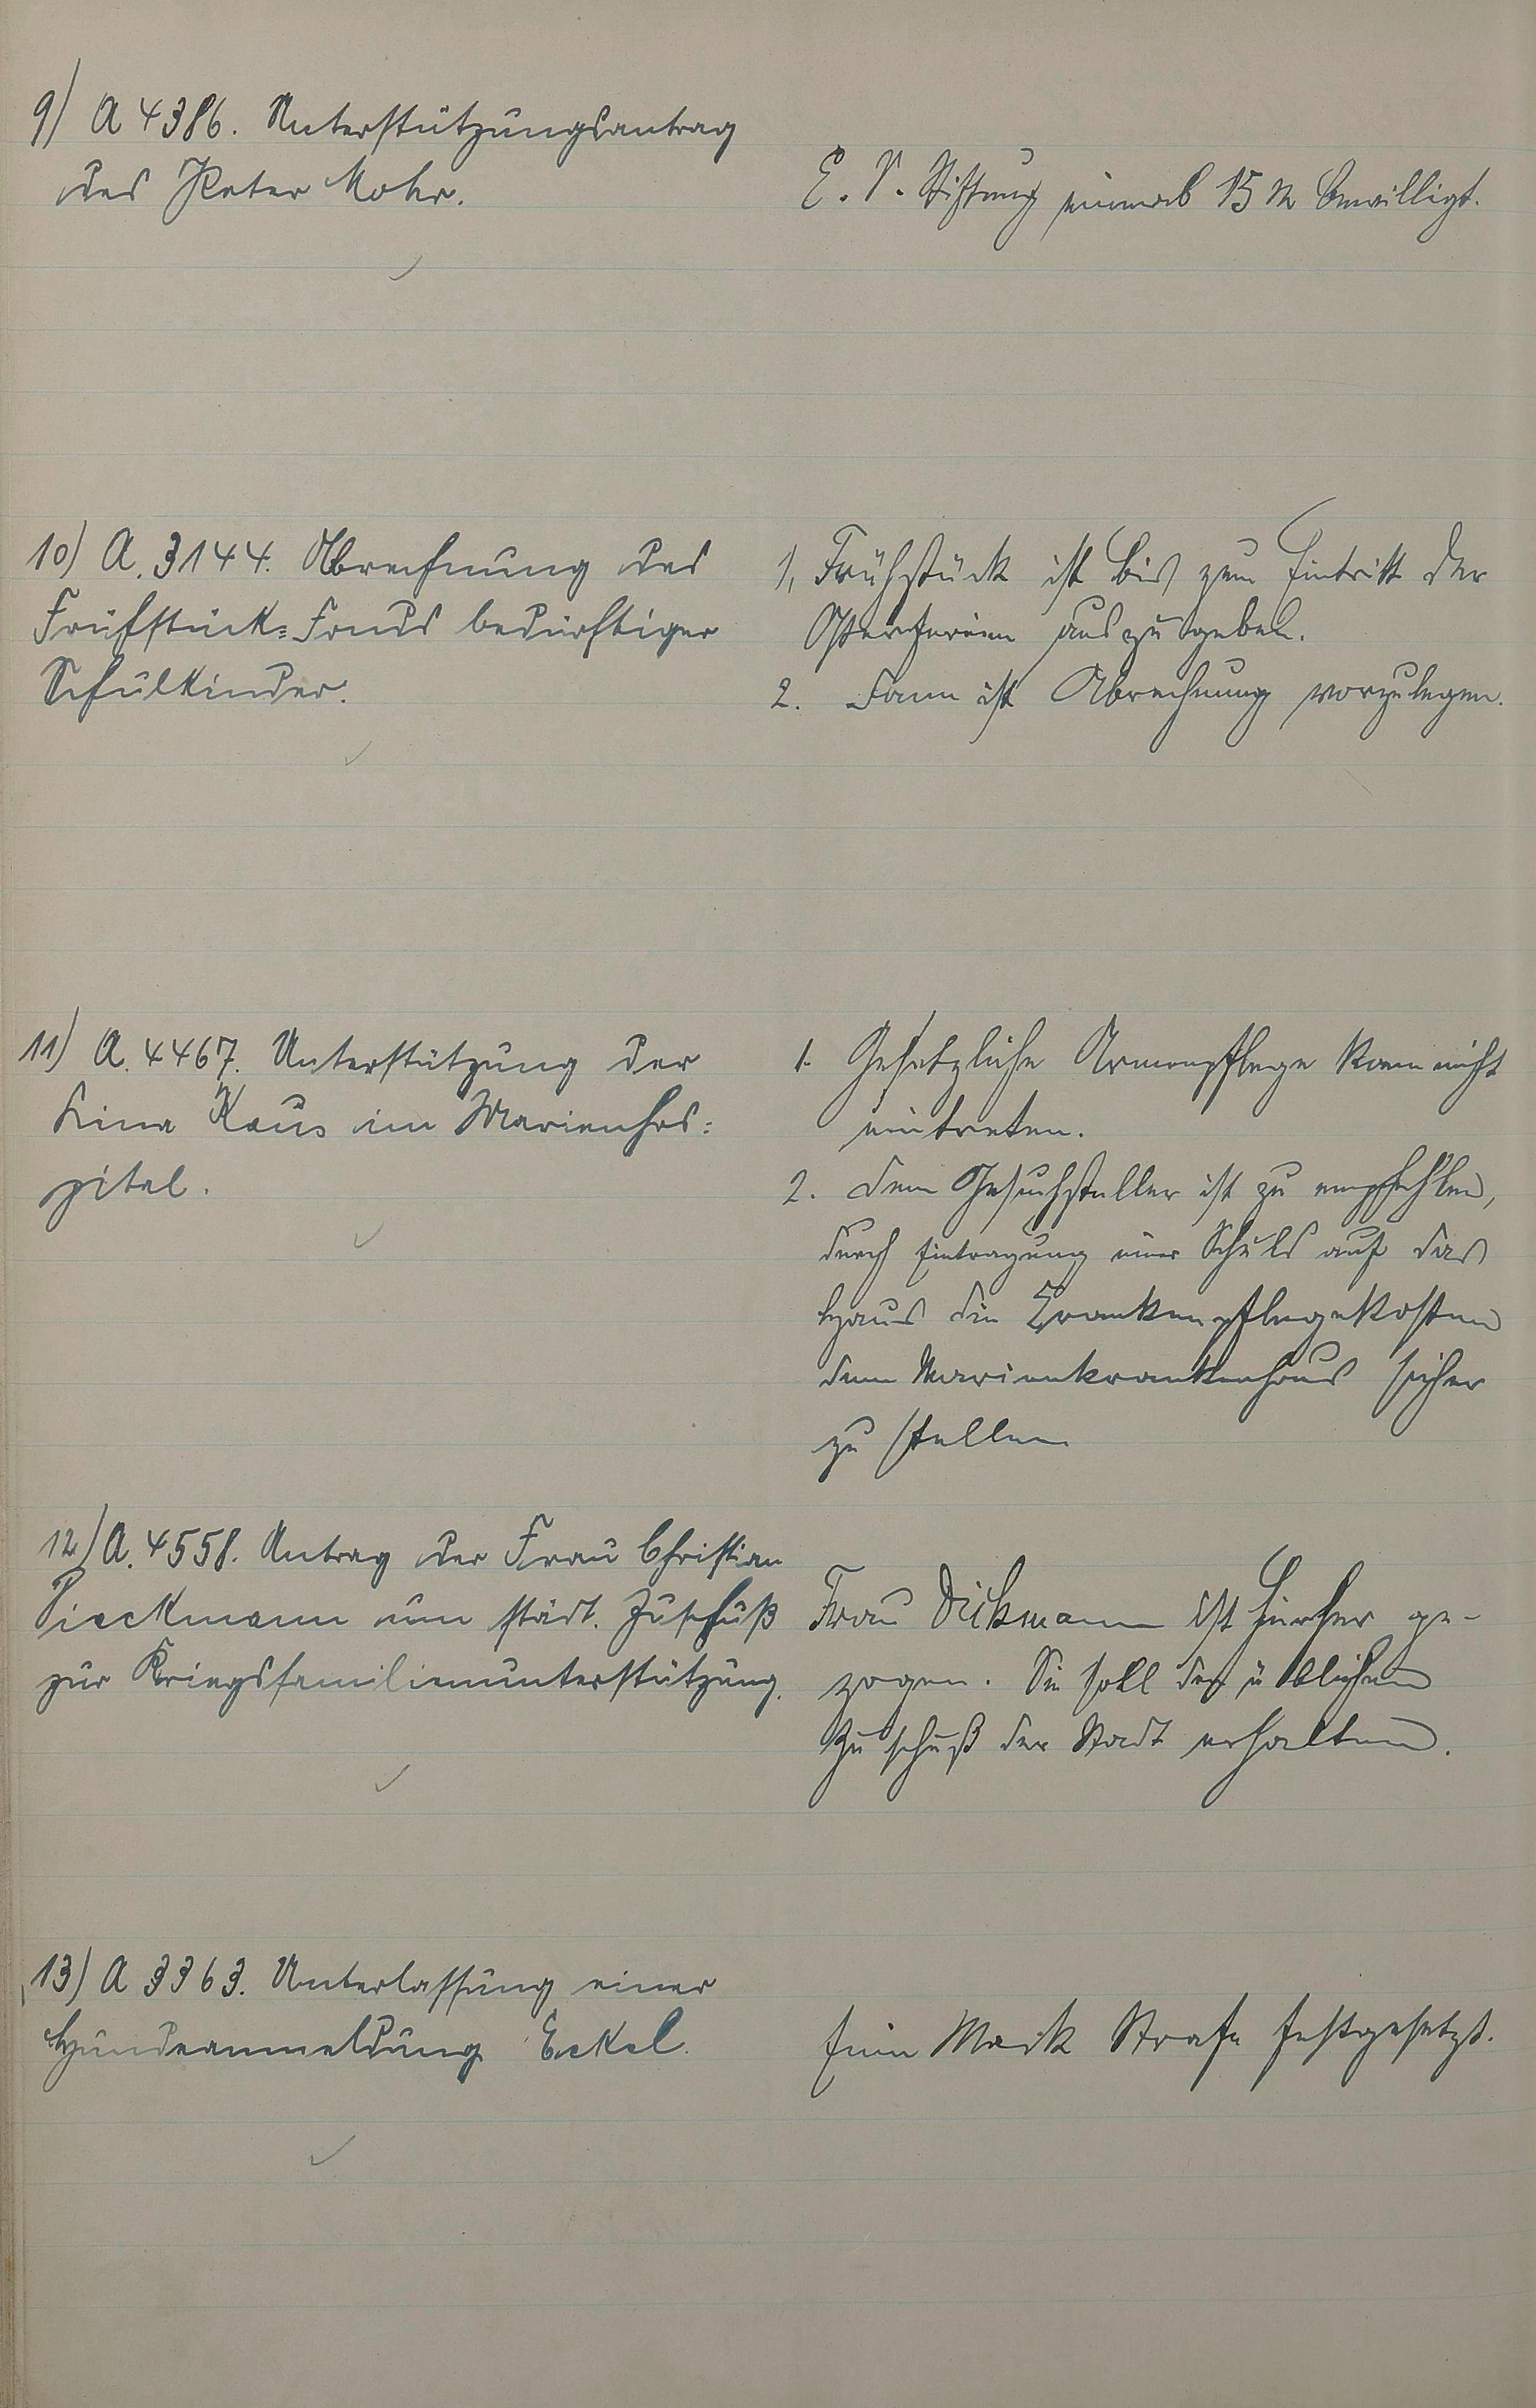 9) A 4386. Unterstützungsantrag
des Peter Mohr.
E. V. Stiftung einmal 15 M bewilligt.
10) A. 3144. Abrechnung des
Frühstück=Fonds bedürftiger
Schulkinder.
1, Frühstück ist bis zum Eintritt der
Osterferien auszugeben.
2. Dann ist Abrechnung vorzulegen.
11) A. 4467. Unterstützung der
Lina Kaus im Marienhos=
pital.
1. Gesetzliche Armenpflege kann nicht
eintreten.
2. Dem Gesuchsteller ist zu empfehlen,
durch Eintragung einer Schuld auf das
Haus die Krankenpflegekosten
dem Marienkrankenhaus sicher
zu stellen
12) A. 4558. Antrag der Frau Christian
Dieckmann um städt. Zuschuß
zur Kriegsfamilienunterstützung.
Frau Dickmann ist hierher ge-
zogen. Sie soll den üblichen
Zuschuß der Stadt erhalten.
13) A 3363. Unterlassung einer
Hundeanmeldung Eckel.
Eine Mark Strafe festgesetzt.